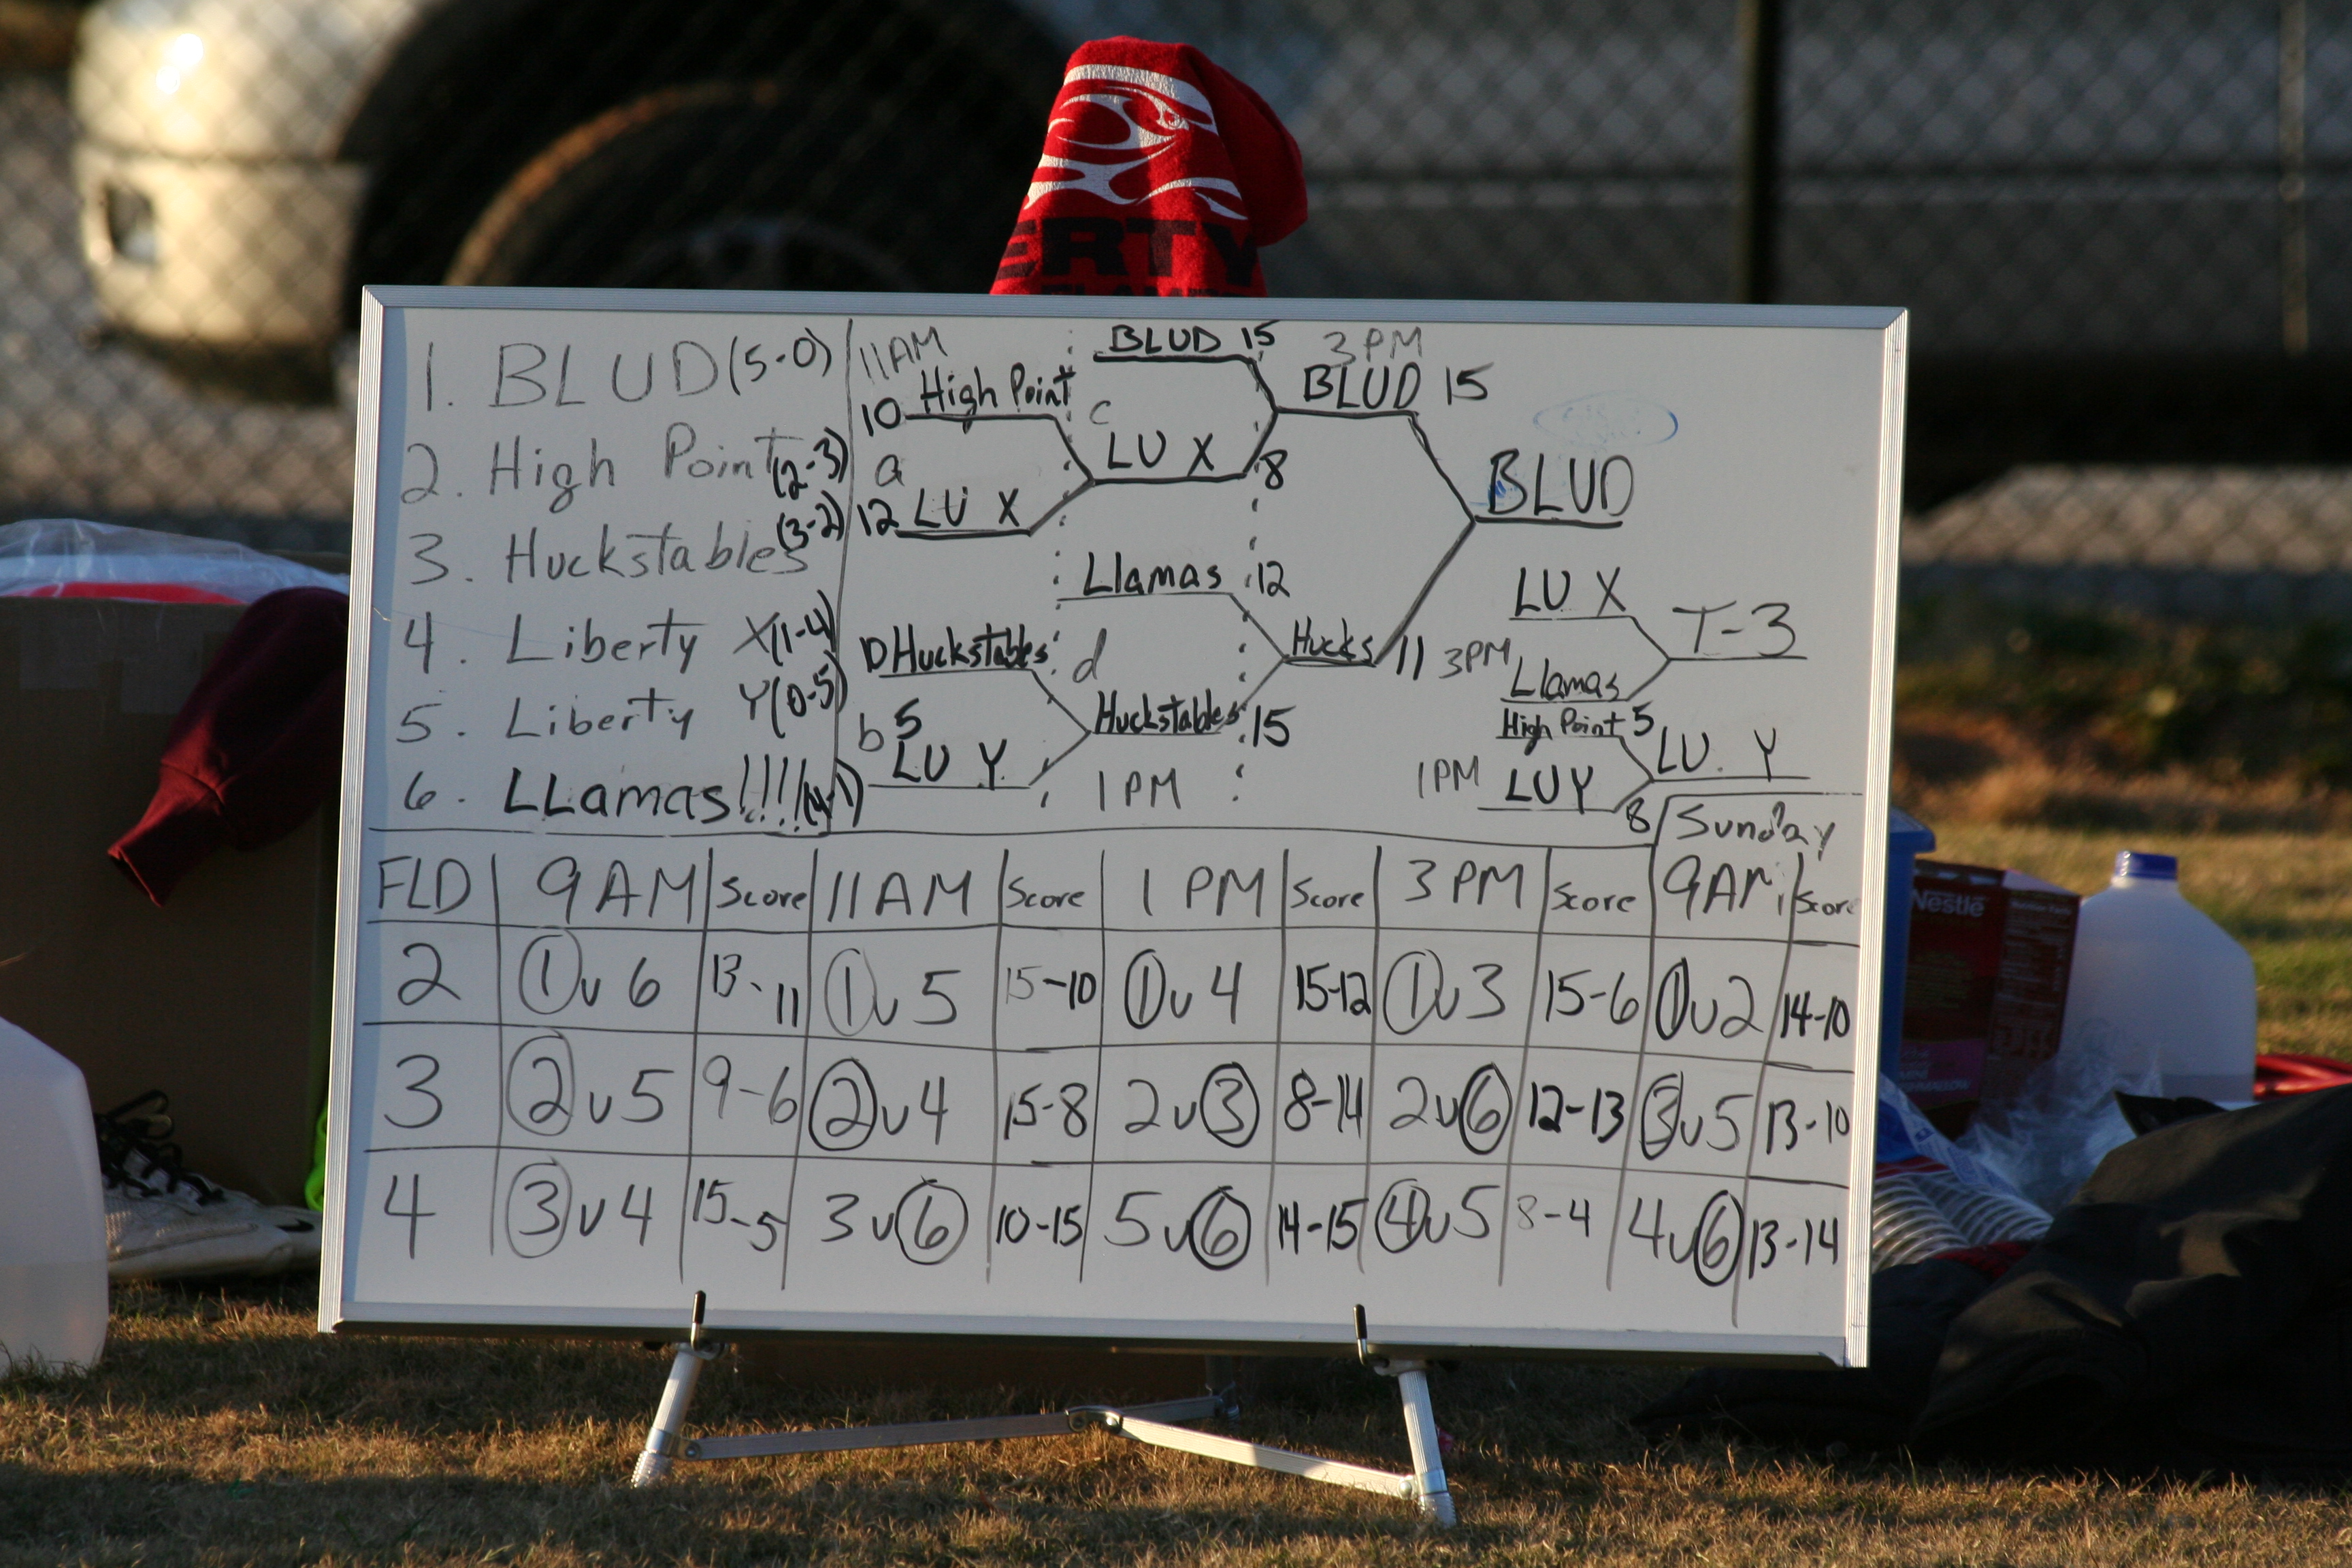 ERTY
1. BLUD (5-0)
2. High Point (2-3)
3. Huckstables (3-2)
4. Liberty X (1-4)
5. Liberty Y (0-5)
6. LLamas!!!! (4-1)
11 AM
10 High Point
a
12 LU X
10 Huckstables
b 5
LU Y
BLUD 15
c
LU X 8
Llamas 12
d
Huckstables 15
1 PM
3 PM
BLUD 15
Hucks 11
BLUD
LU X
3PM
Llamas
T-3
High Point 5
1PM
LU Y 8
LU Y
Sunday
FLD 9 AM Score 11 AM Score 1 PM Score 3 PM Score 9 AM Score
2 1 v 6 13-11 1 v 5 15-10 1 v 4 15-12 1 v 3 15-6 1 v 2 14-10
3 2 v 5 9-6 2 v 4 15-8 2 v 3 8-14 2 v 6 12-13 3 v 5 13-10
4 3 v 4 15-5 3 v 6 10-15 5 v 6 14-15 4 v 5 8-4 4 v 6 13-14
Nestlé